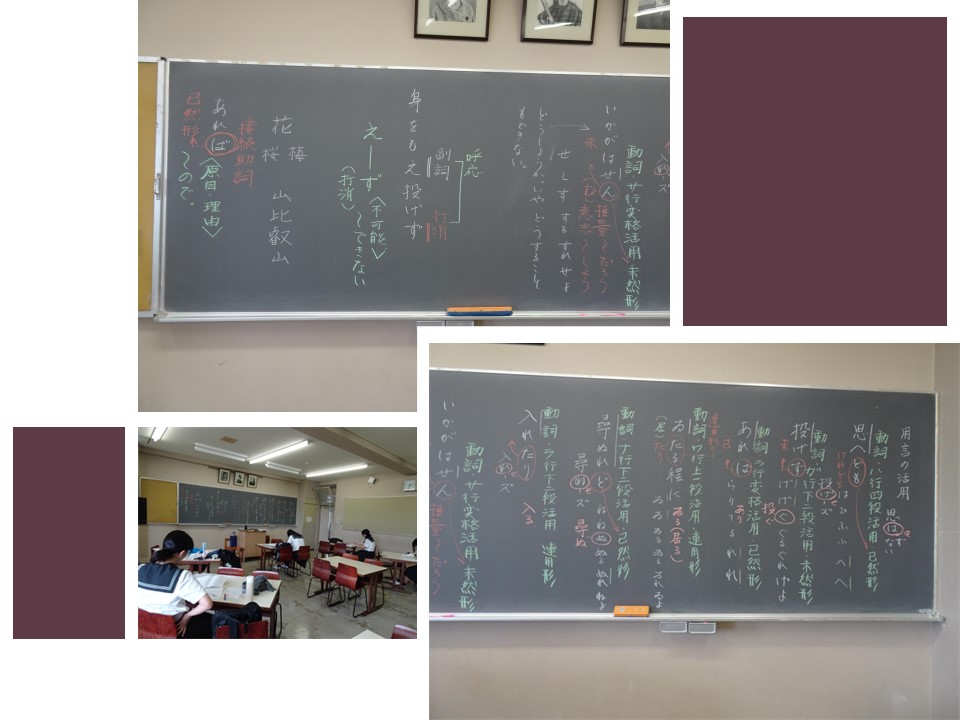 いかがはせん
推量〜だろう
意志〜しよう
動詞 サ行変格活用 未然形
せ し す する すれ せよ
どうしようか、いやどうすることも
もできない。
呼応
副詞
打消
身をもえ投げず
え―ず〈不可能〉
〜できない
(打消)
花
梅
桜
山
比叡山
接続助詞
あれば〈原因・理由〉
〜ので。
已然形
用言の活用
思へども
動詞 ハ行四段活用 已然形
は ひ ふ ふ へ へ
投げず
動詞 ガ行下二段活用 未然形
げ げ ぐ ぐる ぐれ げよ
あれば
動詞 ラ行変格活用 已然形
ら り り る れ れ
ゐたる程に
動詞 ワ行上一段活用 連用形
ゐる(居る)
ゐ ゐ ゐる ゐる ゐれ ゐよ
尋ぬれど
動詞 ナ行下二段活用 已然形
ね ね ぬ ぬる ぬれ ねよ
尋ねズ 尋ぬ
入れたり
動詞 ラ行下二段活用 連用形
入れズ
入る
いかがはせん
動詞 サ行変格活用 未然形